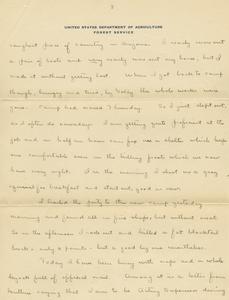 3
UNITED STATES DEPARTMENT OF AGRICULTURE
FOREST SERVICE
roughest piece of country in Arizona. I nearly wore out
a pair of boots and very nearly wore out my horse, but I
made it without getting lost. When I got back to camp
though, hungry and tired, by today the whole works were
gone. Camp had moved Thursday. So I just slept out,
as I often do nowadays. I am getting quite proficient at the
job and in half an hour can fix up a shelter which keeps
me comfortable even in the killing frosts which we now
have every night. In the morning I shoot me a gray
squirrel for breakfast and start out, good as new.
I hauled the party to this new camp yesterday
morning and found all in fine shape, but without meat.
So in the afternoon I rode out and killed a fat blacktail
buck - only a points - but a good big one nevertheless.
Today I have been busy with maps and a whole
of mail. Among it is a letter from
saying that I am to be Acting Supervisor during